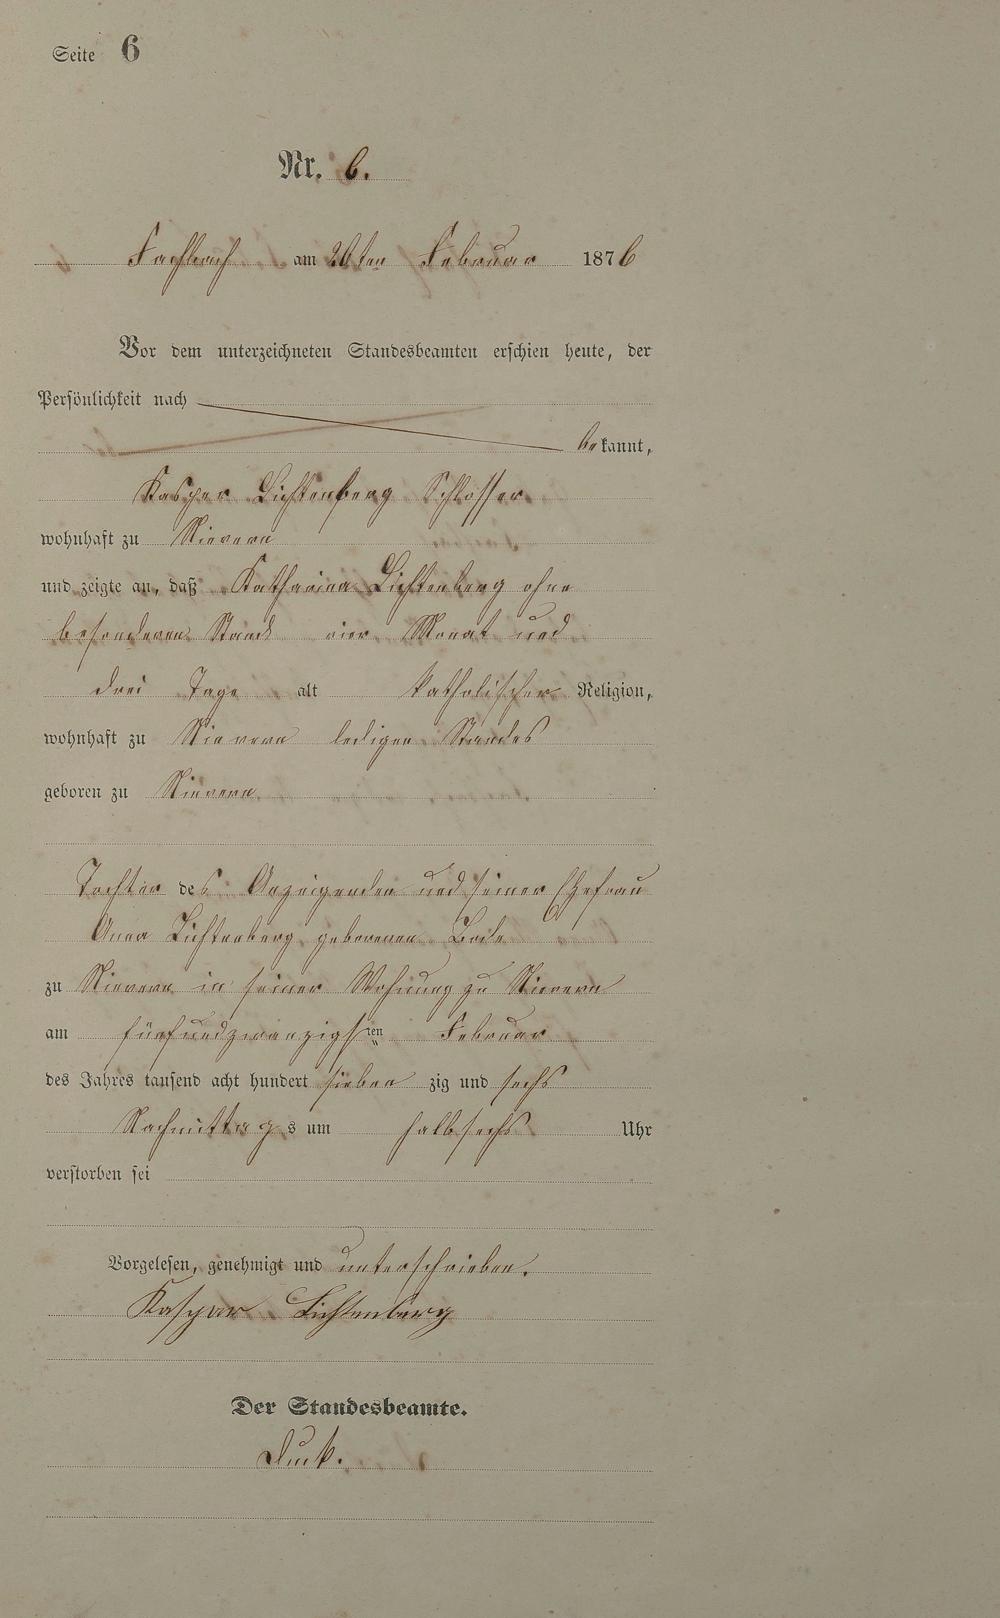 Seite 6
Nr. 6.
Fachbach am 26ten Februar 1876
Vor dem unterzeichneten Standesbeamten erschien heute, der
Persönlichkeit nach
bekannt,
Kaspar Lichtenberg Schlosser
wohnhaft zu Nievern
und zeigte an, daß Katharina Lichtenberg ohne
besonderen Stand vier Monat und
drei Tage alt katholischer Religion,
wohnhaft zu Nievern ledigen Standes
geboren zu Nievern
Tochter des Anzeigenden und seiner Ehefrau
Anna Lichtenberg geborenen
zu Nievern in seiner Wohnung zu Nievern
am fünfundzwanzigsten Februar
des Jahres tausend acht hundert siebenzig und sechs
Nachmittags um halb sechs Uhr
verstorben sei
Vorgelesen, genehmigt und unterschrieben.
Kaspar Lichtenberg
Der Standesbeamte.